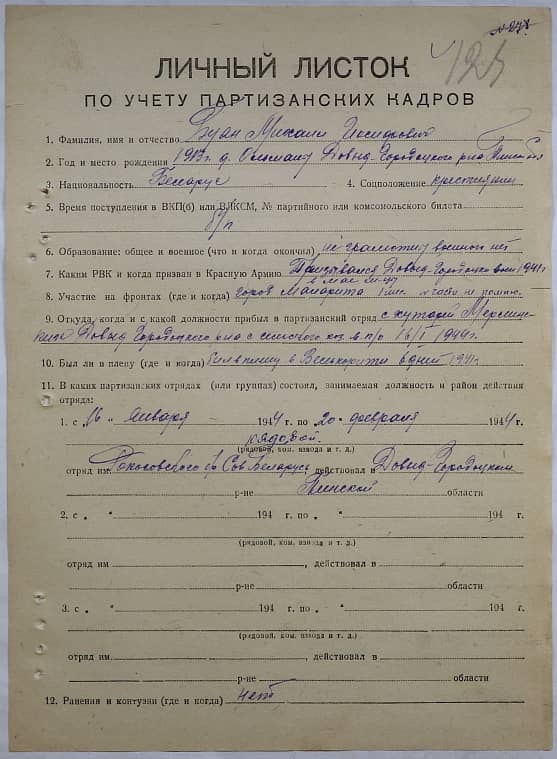 ЛИЧНЫЙ ЛИСТОК
ПО УЧЕТУ ПАРТИЗАНСКИХ КАДРОВ
1. Фамилия, имя и отчество Михаил Иосифович
2. Год и место рождения 1913 г. д. Давыд-Городоцкого р-на
3. Национальность Беларус 4. Соцположение крестьянин
5. Время поступления в ВКП(б) или ВЛКСМ, № партийного или комсомольского билета
б/п
6. Образование: общее и военное (что и когда окончил) не грамотный военного нет
7. Каким РВК и когда призван в Красную Армию Призывался Давыд-Городоцко 1941 г.
в мае м-це
8. Участие на фронтах (где и когда) город Малорита части не помню.
9. Откуда, когда и с какой должности прибыл в партизанский отряд с хуторов
Давыд Городоцкого р-на с сельского хоз. в п/о 16/I 1944 г.
10. Был ли в плену (где и когда) Был в плену в 6 дней 1941 г.
11. В каких партизанских отрядах (или группах) состоял, занимаемая должность и район действия
отряда:
1. с „16" января 1944 г. по „20" февраля 1944 г.
рядовой.
(рядовой, ком. взвода и т. д.)
отряд им. Рокосовского бр Сов. Беларусь, действовал в Давыд-Городоцким
р-не Пинской области
2. с „ " 194 г. по „ " 194 г.
(рядовой, ком. взвода и т. д.)
отряд им. , действовал в
р-не области
3. с „ " 194 г. по „ " 194 г.
(рядовой, ком. взвода и т. д.)
отряд им. , действовал в
р-не области
12. Ранения и контузии (где и когда) нет